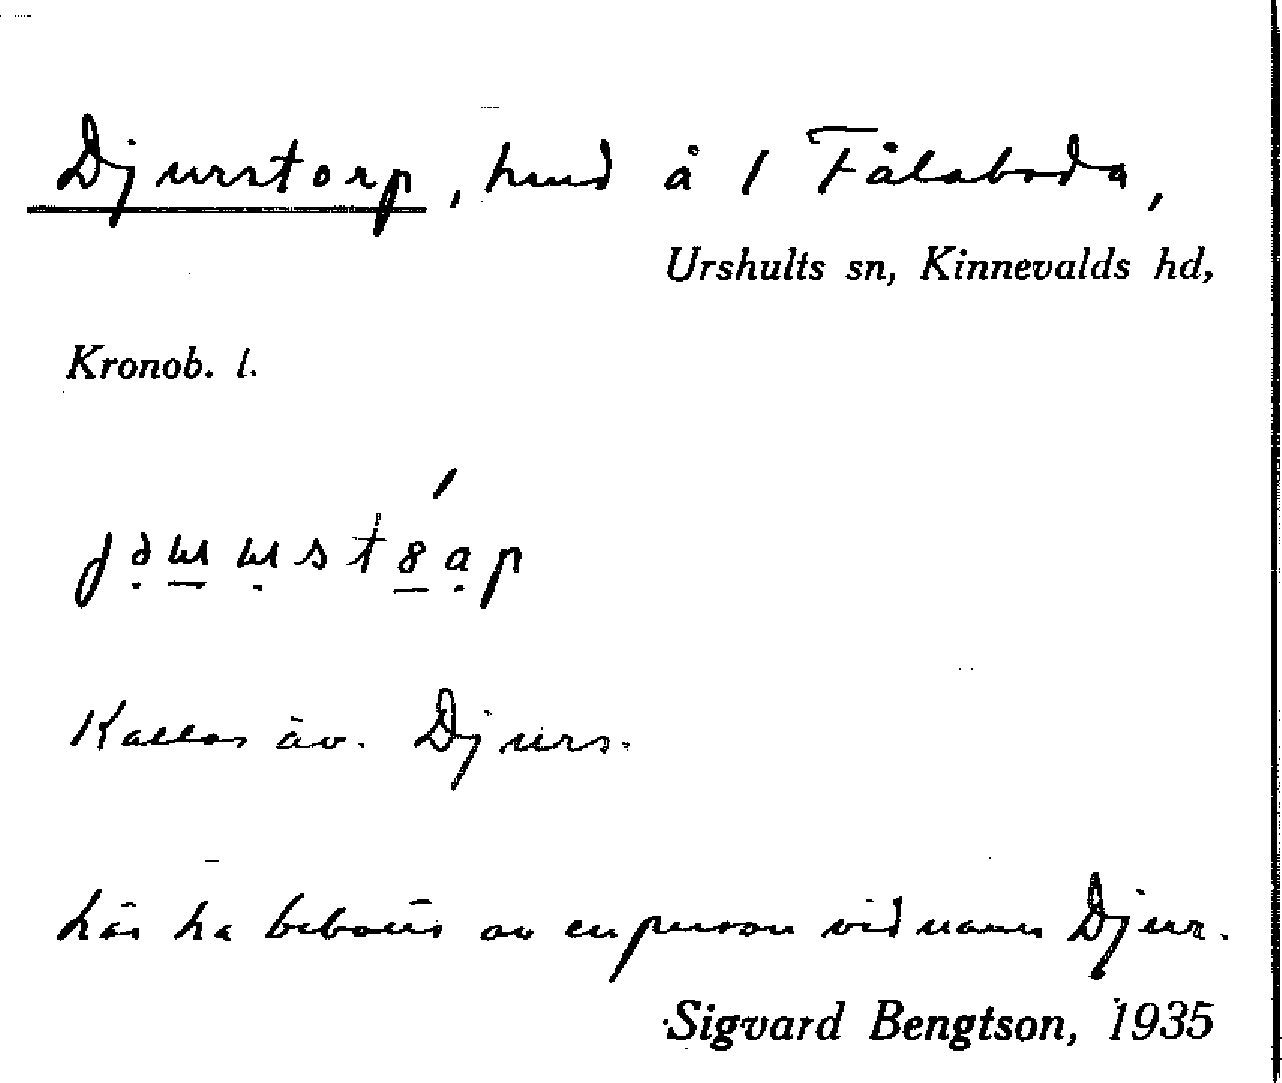 Djurstorp, hmd å 1 Fålaboda,
Urshults sn, Kinnevalds hd,
Kronob. l.
Kallas äv. Djurs.
Lär ha bebotts av en person vid namn Djur.
Sigvard Bengtson, 1935